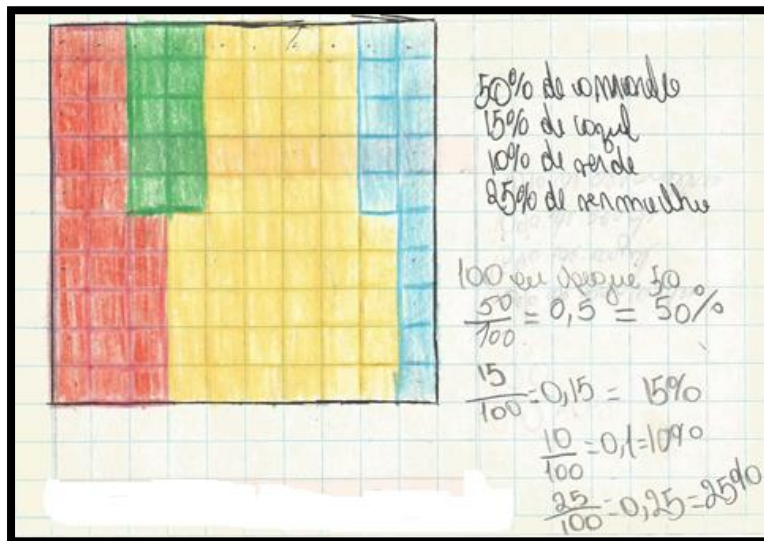 50% de amarelo
15% de azul
10% de verde
25% de vermelho
100 eu 50
50/100 = 0,5 = 50%
15/100 = 0,15 = 15%
10/100 = 0,1 = 10%
25/100 = 0,25 = 25%